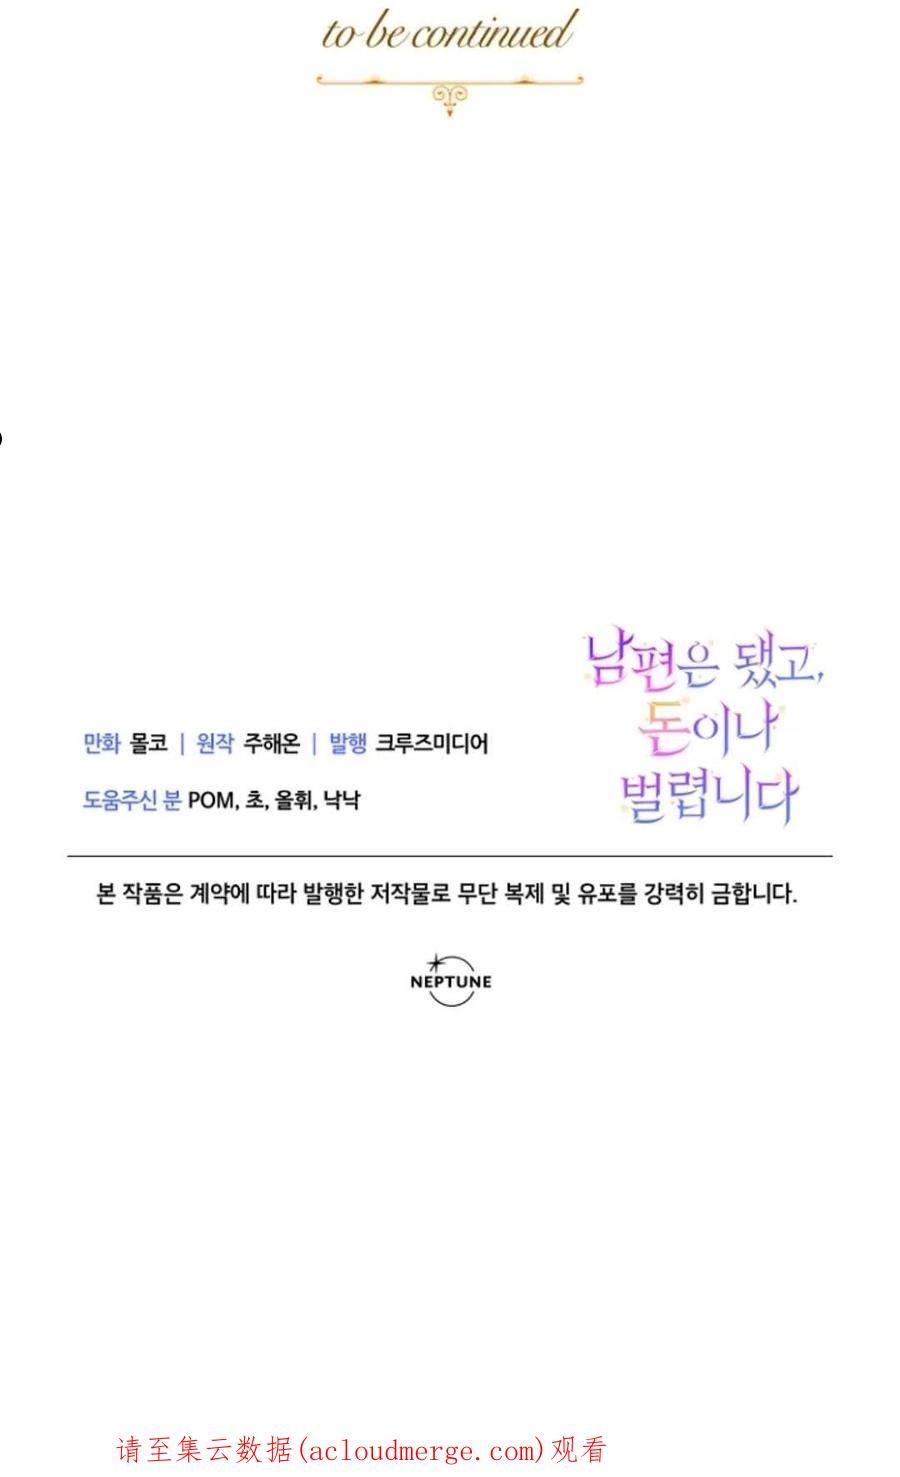 to be continued
남편은 됐고,
돈이나
벌렵니다
만화 몰코 | 원작 주해온 | 발행 크루즈미디어
도움주신 분 POM, 초, 올휘, 낙낙
본 작품은 계약에 따라 발행한 저작물로 무단 복제 및 유포를 강력히 금합니다.
NEPTUNE
请至集云数据(acloudmerge.com)观看